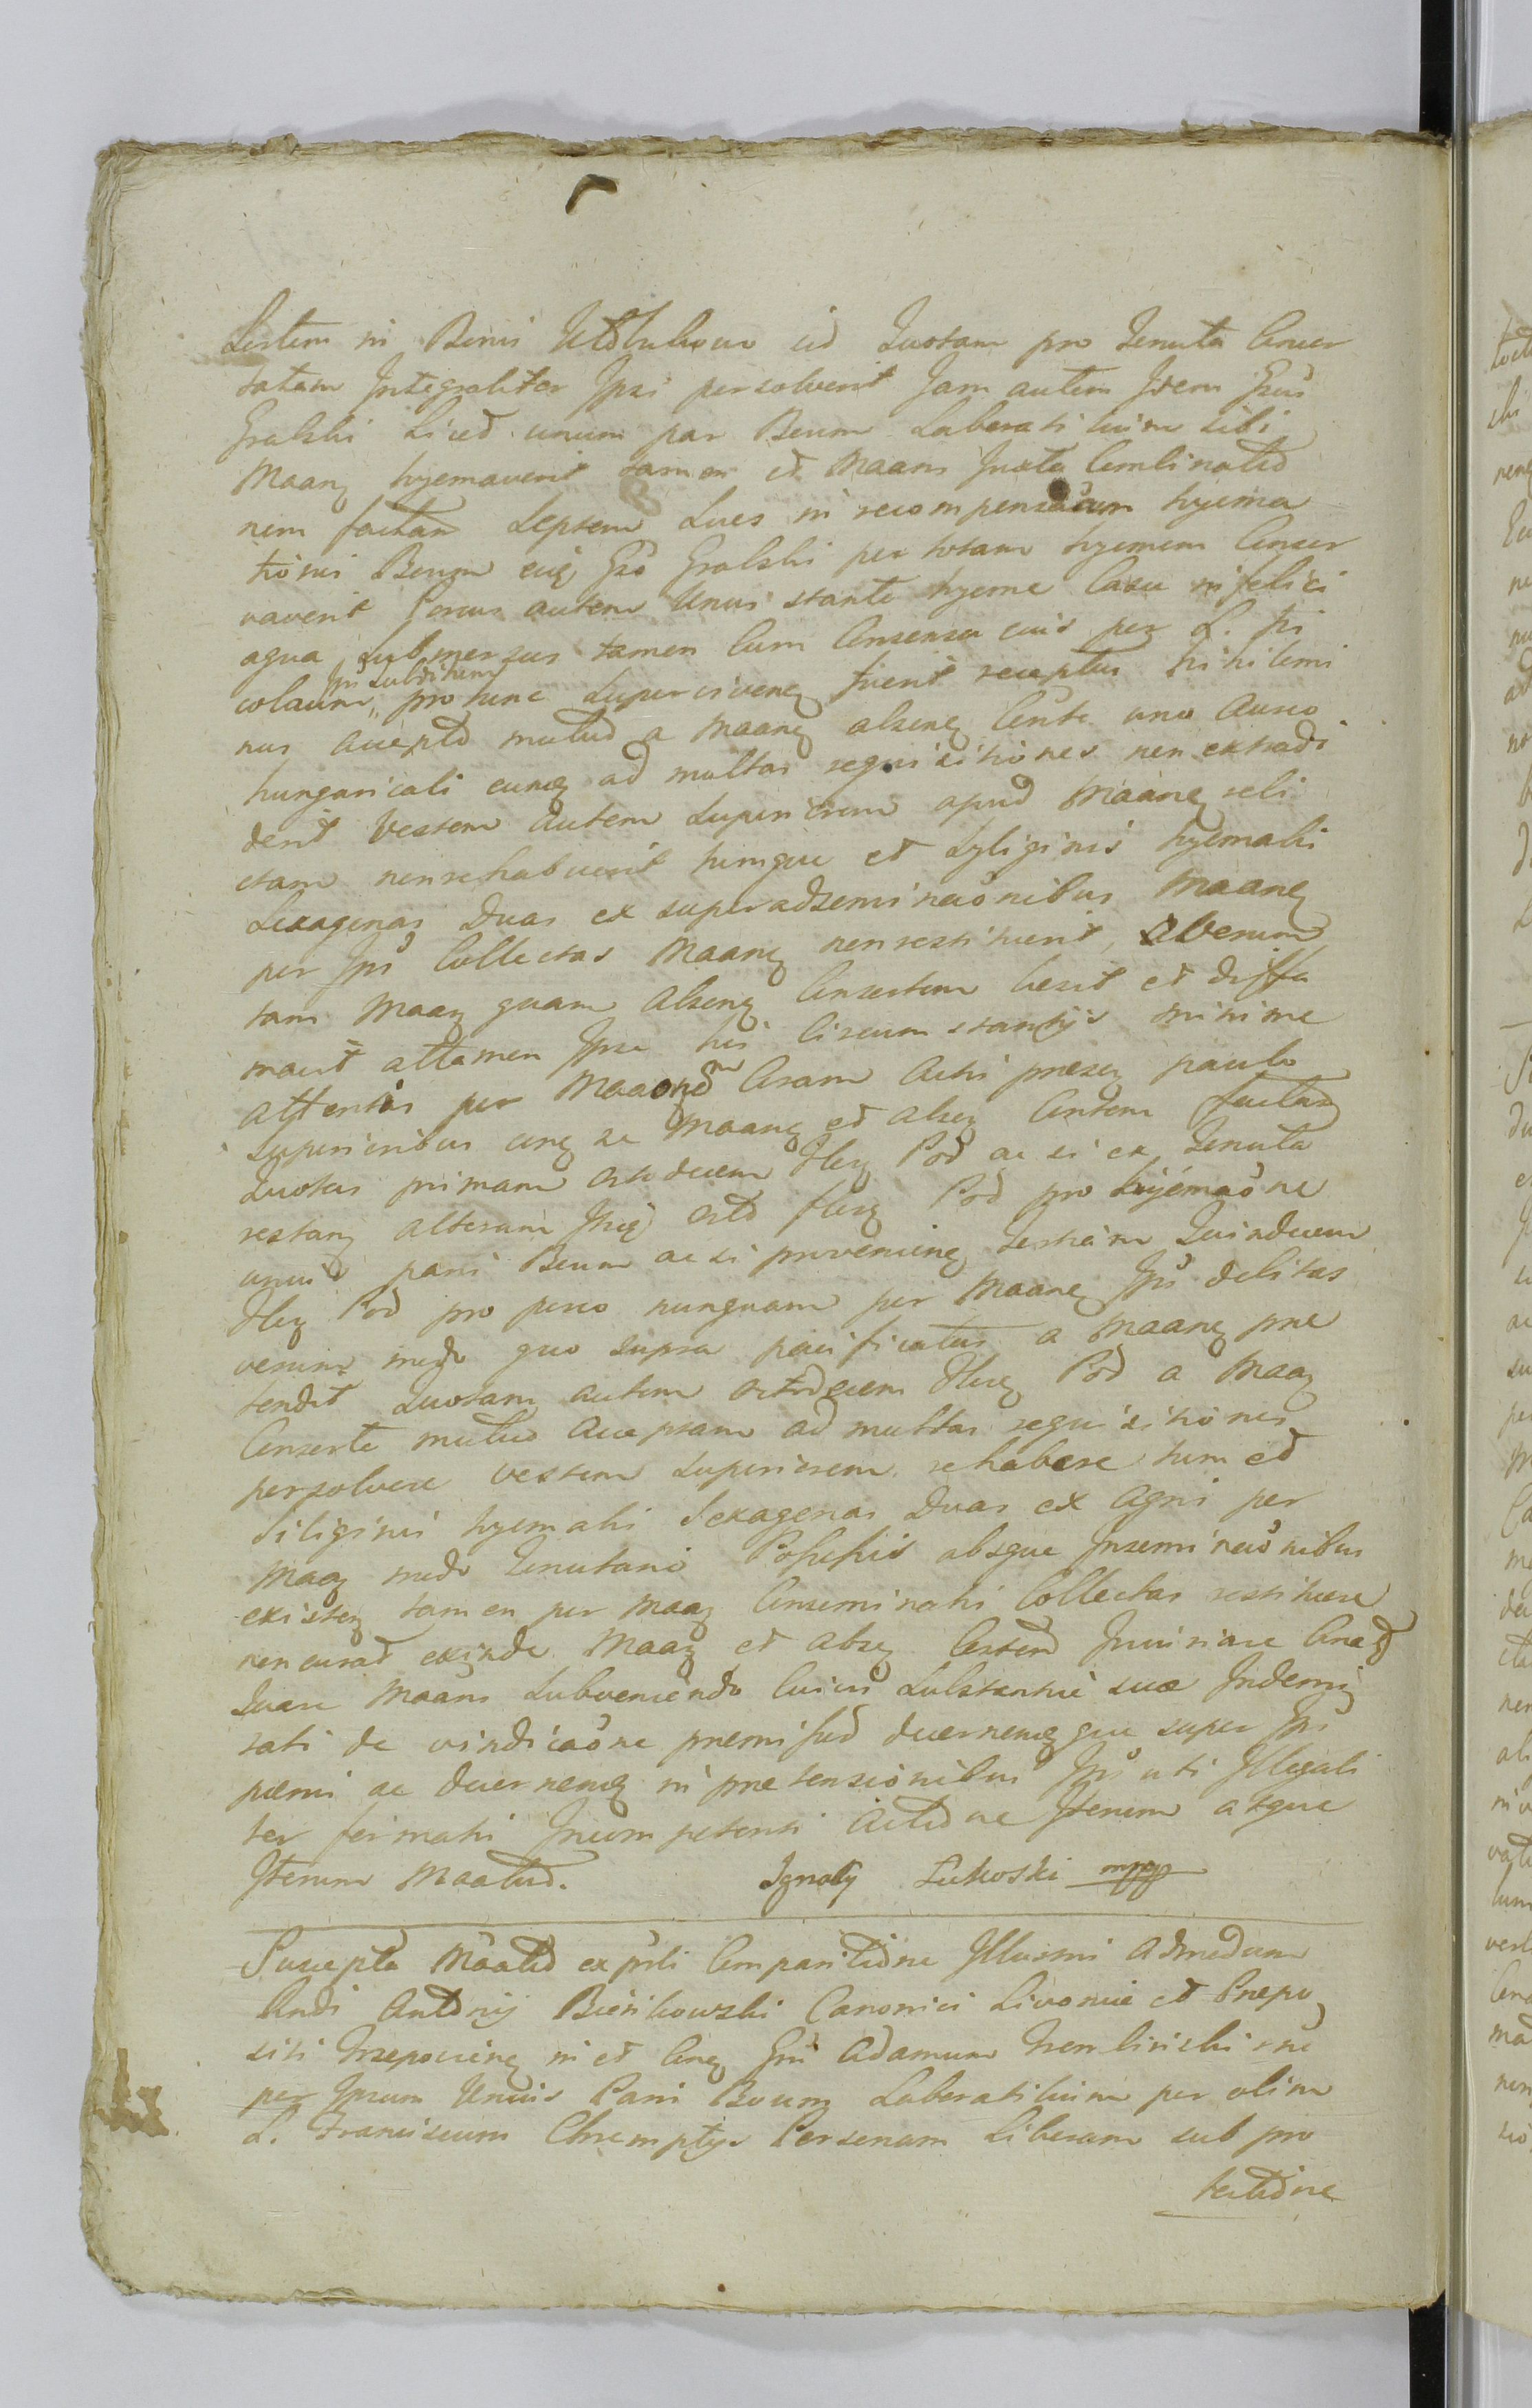 Sestem in Bonis sid Quotam pro Tenuta Conver
tatam Integraliter Ipsi persolverit Jam autem Idem Gsus
Gralski Licet unum par Boum Laboratitium sibi
Maanq hyemaverit tamen et Maans Juxta Combinatio
nem factam Septem Sues in recompensaoem hyema
tionis Boum eiq Gso Gralski per totam hyemem Conser
vaverit Porcus autem Unus stante hyeme Casu infelici
aqua Submersus tamen Cum Consensu eius per L. Ni
colaum pro tunc Superiveneq fuerit receptus nihilomi
nus accepto mutuo a Maanq Conte uno Aureo
hungaricali eumq ad multas requisitiones non extradi
derit Vestem autem Superiorem apud Maanq reli
ctam non rehabuerit tumque et Syliginis hyemalis
Sexagenas Duas ex superadseminaonibus Maanq
per Ips Collectas Maanq non restituerit, verum
tam Maanq quam Conzortem Lesit et diffa
mavit attamen Ipse his Circumstantijs minime
attentis per Coram Actis presq paulo
superioribus cunq se Maanq et factam
Quotas primam octodecem flenq Pol ac si ex Tenuta
restanq alteram Itiq octo flenq Pol pro hyemaone
unius paris Boum ac si provenienq tertiam Quindecem
flenq Pol pro porco nunquam per Maanq Ips debitas
verum modo quo supra pacificatus a Maanq pre
tendit Quotam autem octodecem flenq Pol a Maaq
Conzorte mutuo acceptam ad multas requisitiones
persolvere vestem superiorem rehabere tum et
Siliginis hyemalis Sexagenas Duas ex Agris per
Maaq modo Tenutario Possessis absque Inseminaonibus
existeq tamen per Maaq Conseminatis Collectas restituere
non curat exinde Maaq et Conzortem Iniuriare
Quare Maans Subveniendo Cuius Substantie sue Indemni
tati de vindicaone premissor decernenq que super Ips
penis ac decernenq in pretensionibus Ips uti Illegali
ter formatis Incompetenti Actione Iterum atque
Iterum Maatur. Ignacy Łukoski mpp
Suscepta Maatio ex psli Comparitione Illusmi Admodum
Rndi Antonij Bieńkowski Canonici Livonie et Prepo
siti in et Conq Gsu Adamum
per Ipsum Unius Paris Boum Laboratitium per olim
L. Franciscum Personam Liberam sub pro
tectione